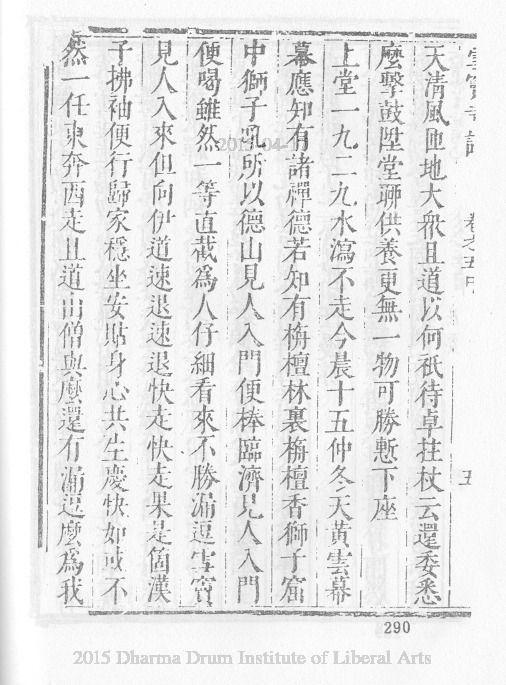 雪竇寺誌 卷之五 五
天清風匝地大眾且道以何祇待卓拄杖云還委悉
麼擊鼓陞堂聊供養更無一物可勝慙下座
上堂一九二九水瀉不走今晨十五仲冬天黃雲幕
幕應知有諸禪德若知有栴檀林裏栴檀香獅子窟
中獅子乳所以德山見人入門便棒臨濟見人入門
便喝雖然一等直截為人仔細看來不勝漏逗雪竇
見人入來但向伊道速退速退快走快走果是箇漢
子拂袖便行歸家穩坐安貼身心共生慶快如或不
然一任東奔西走且道山僧與麼還有漏逗麼為我
290
2015 Dharma Drum Institute of Liberal Arts